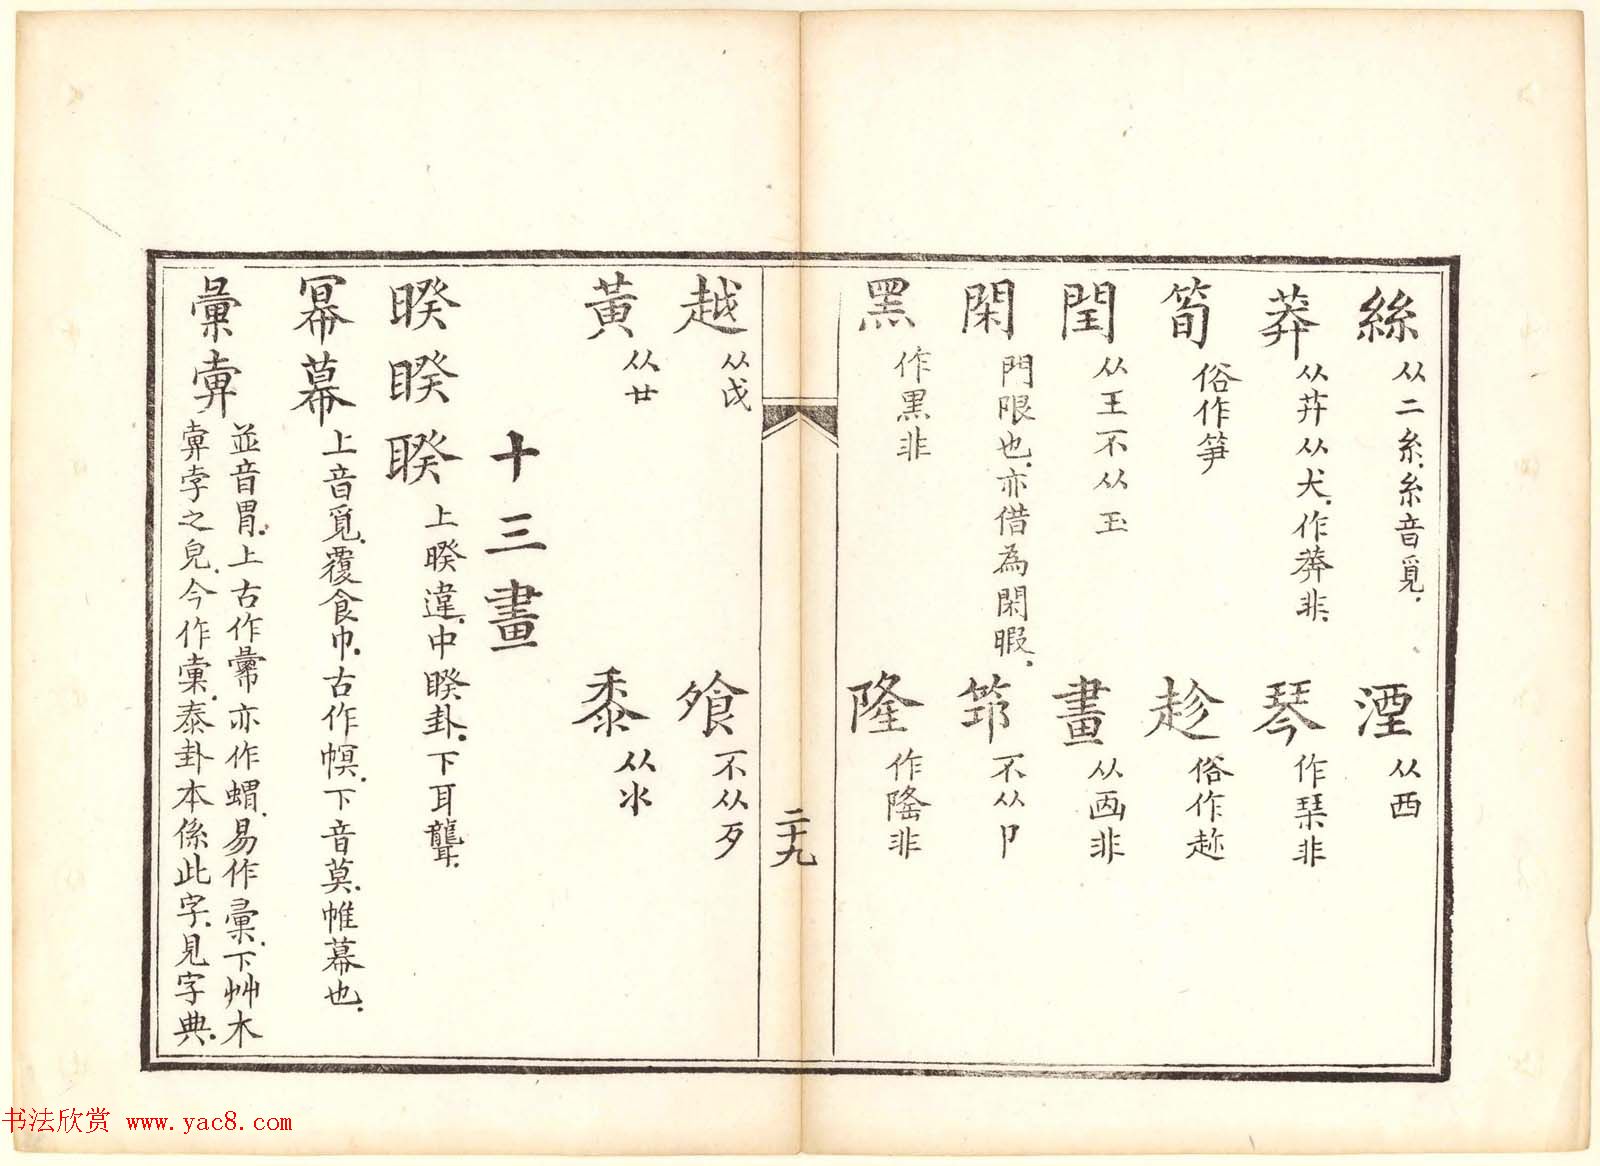 絲 从二糸糸音覓 湮 从西
莽 从茻从犬作莾非 琴 作琹非
筍 俗作笋 趁 俗作趂
閏 从王不从玉 畫 从靣非
閑 門限也亦借為閑暇 筇 不从卩
黑 作黒非 隆 作隆非
二十九
越 从戉 飧 不从歹
黃 从廿 黍 从氺
十三畫
暌睽聧 上暌違中睽卦下耳聾
冪幕 上音覓覆食巾古作幎下音莫帷幕也
彙㚅 並音胃上古作㣇亦作蝟易作彙下艸木
㚅孛之皃今作彙泰卦本係此字見字典
书法欣赏 www.yac8.com